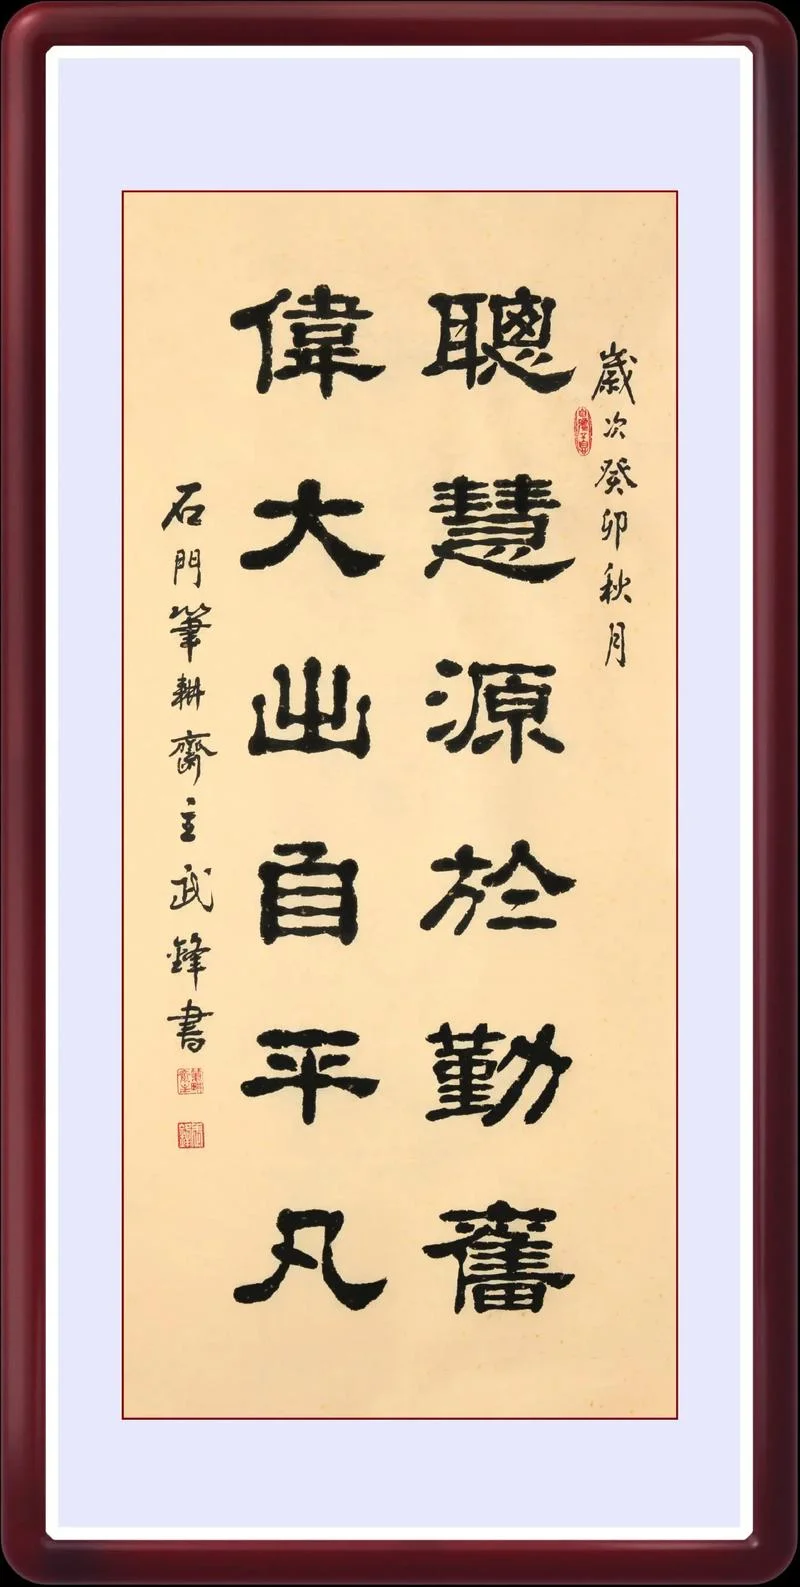 歲次癸卯秋月
聰慧源於勤奮
偉大出自平凡
石門筆耕齋主武鋒書